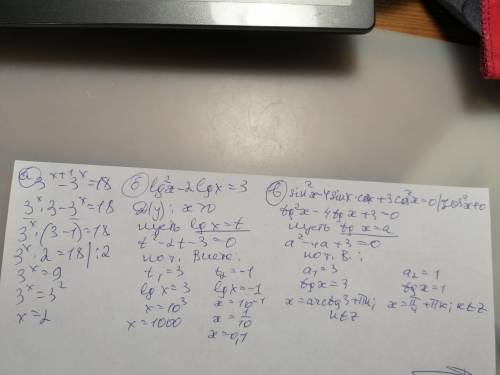 а) 3^(x+1) - 3^x = 18
3^x · 3 - 3^x = 18
3^x · (3-1) = 18
3^x · 2 = 18 | :2
3^x = 9
3^x = 3^2
x = 2
б) lg²x - 2 lgx = 3
x > 0
пусть lgx = t
t² - 2t - 3 = 0
по т. Виета:
t₁ = 3 t₂ = -1
lgx = 3 lgx = -1
x = 10³ x = 10⁻¹
x = 1000 x = 1/10
x = 0,1
в) sin²x - 4 sinx · cosx + 3 cos²x = 0 | : cos²x ≠ 0
tg²x - 4 tgx + 3 = 0
пусть tgx = a
a² - 4a + 3 = 0
по т. В.:
a₁ = 3 a₂ = 1
tgx = 3 tgx = 1
x = arctg3 + πk; x = π/4 + πk; k∈Z
k∈Z